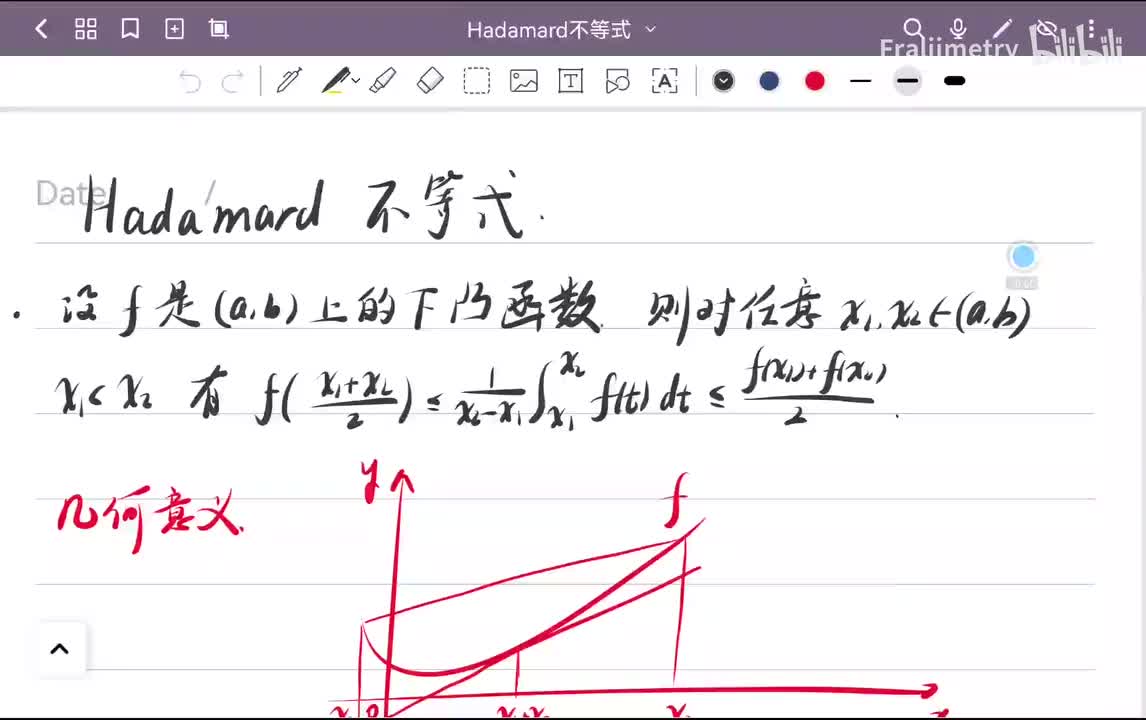 Hadamard不等式
Fraljimetry bilibili
Date /
Hadamard 不等式.
· 设 f 是 (a,b) 上的下凸函数. 则对任意 x₁,x₂∈(a,b)
x₁<x₂ 有 f((x₁+x₂)/2) ≤ 1/(x₂-x₁) ∫_{x₁}^{x₂} f(t) dt ≤ (f(x₁)+f(x₂))/2.
几何意义.
y
f